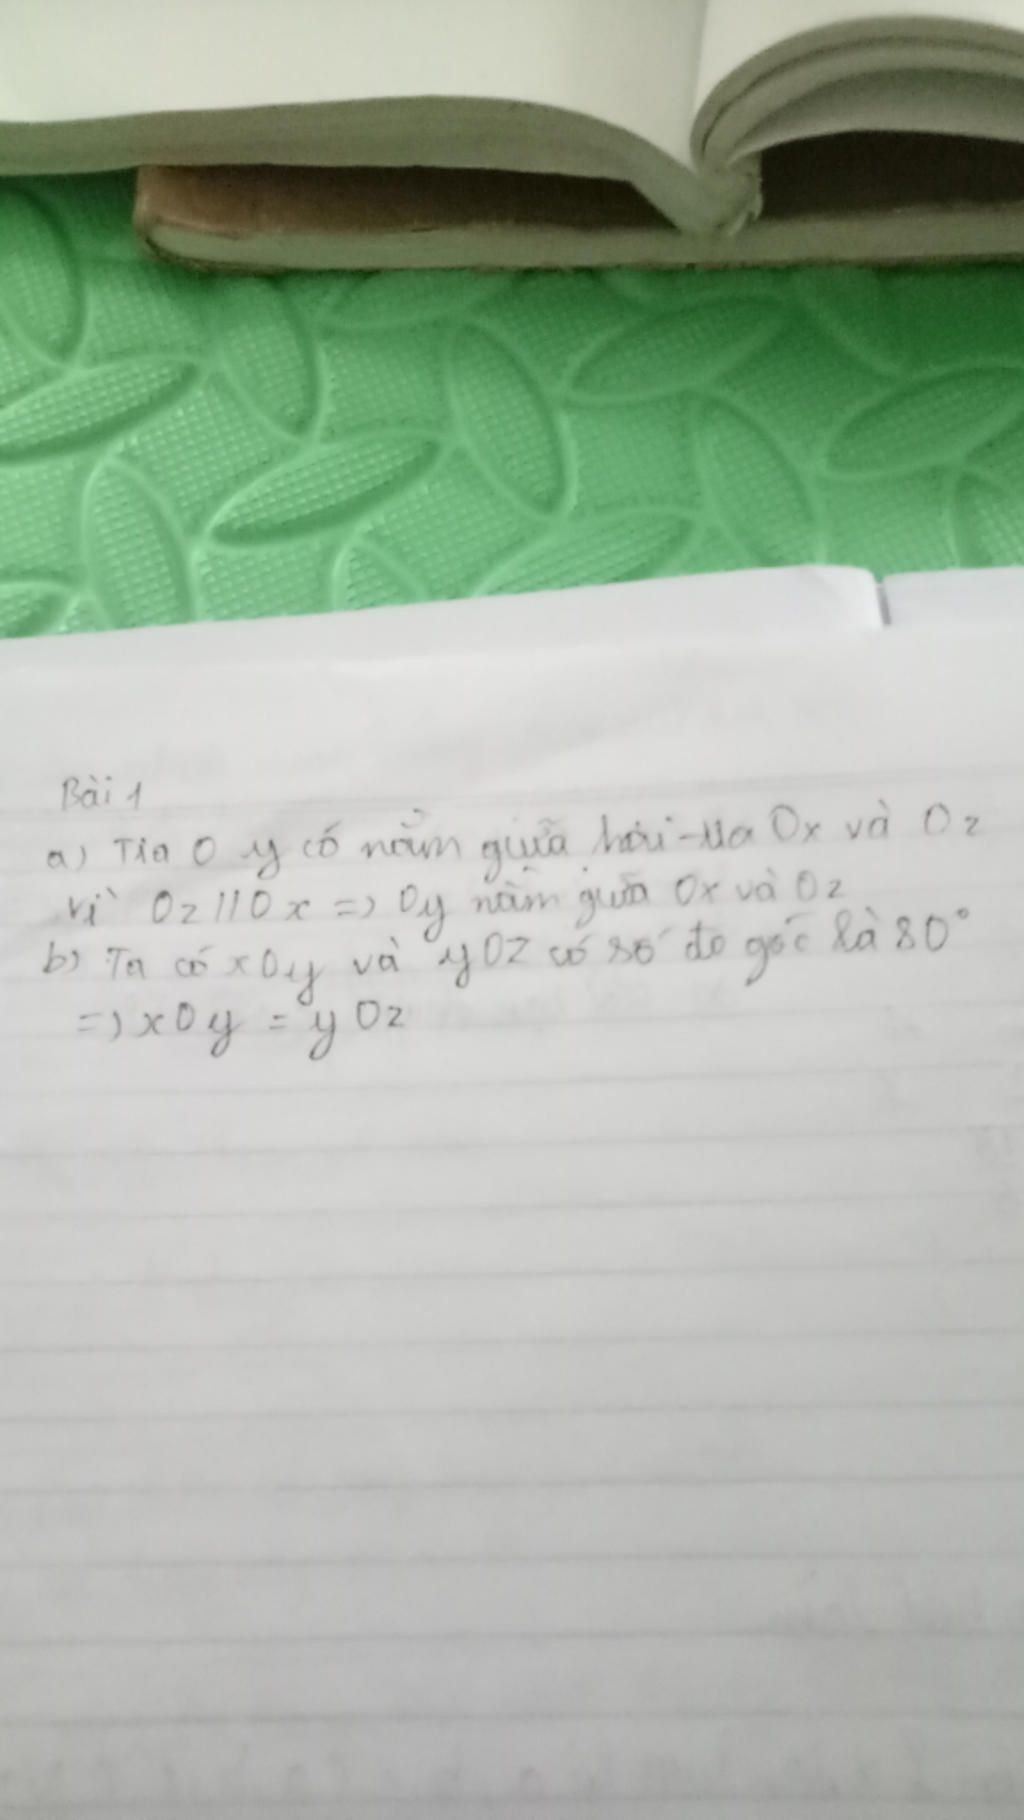 Bài 1
a) Tia Oy có nằm giữa hai tia Ox và Oz
Vì Oz//Ox => Oy nằm giữa Ox và Oz
b) Ta có xOy và yOz có số đo góc là 80°
=> xOy = yOz